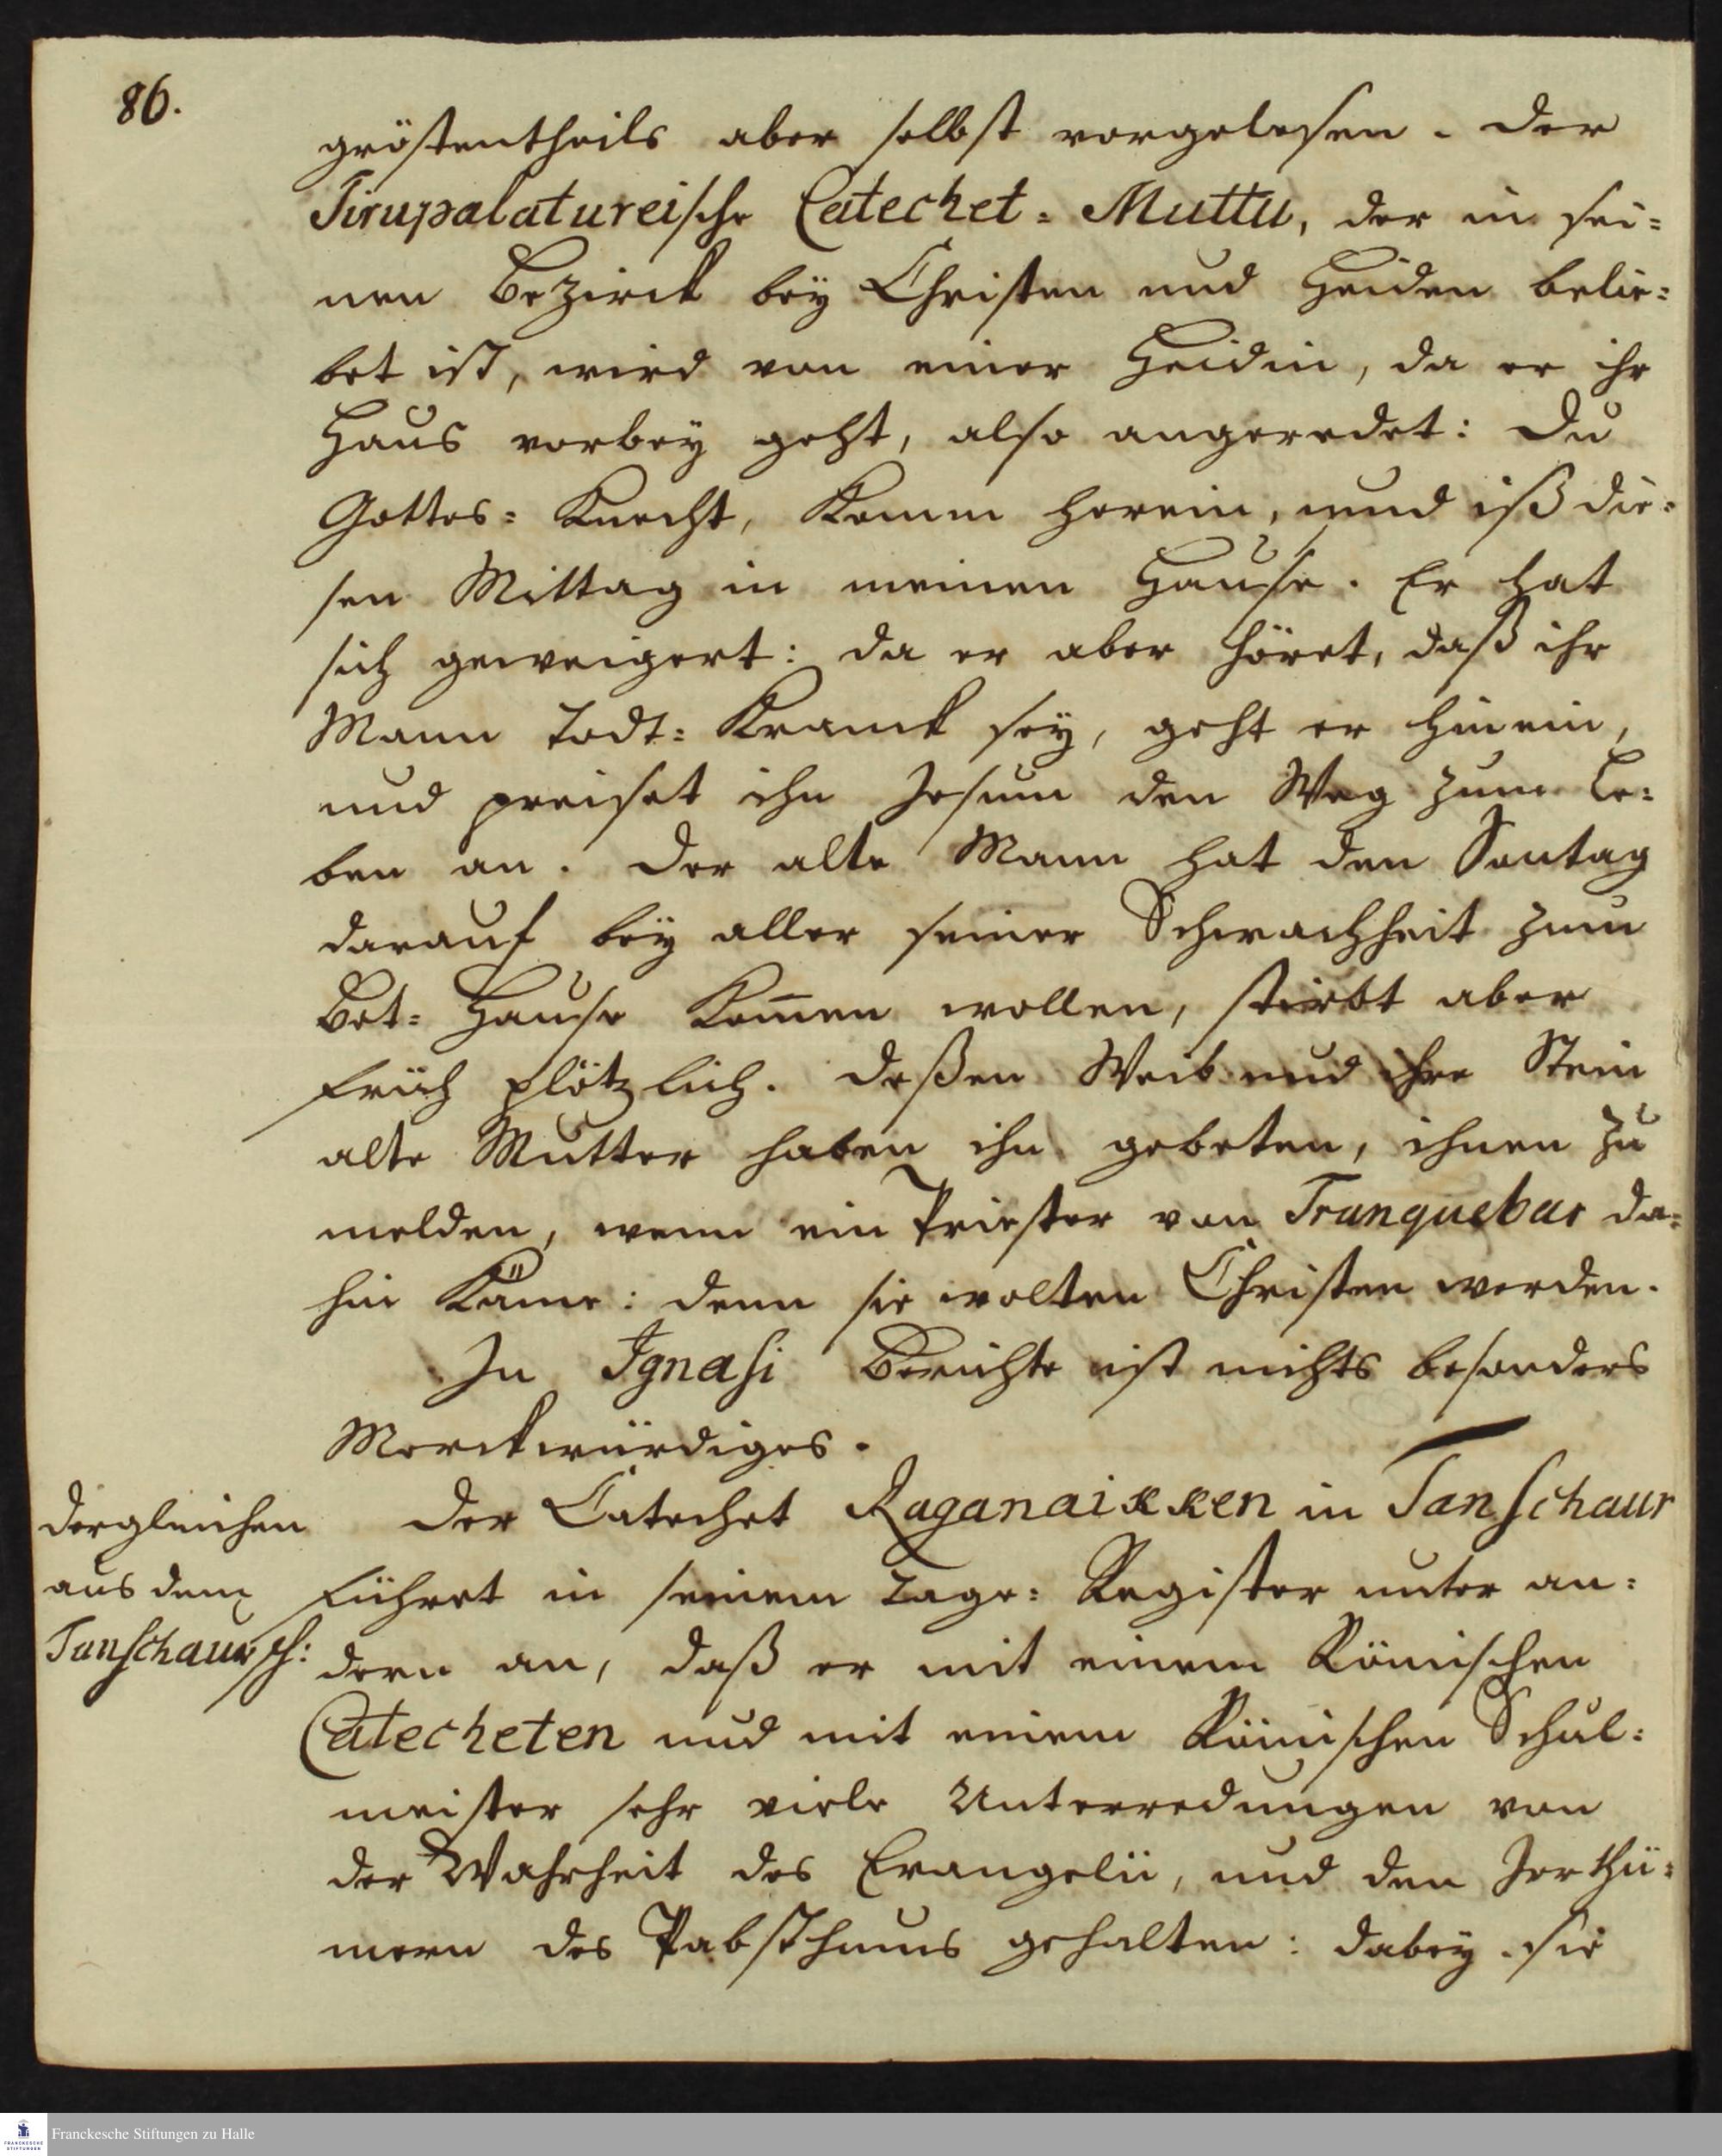 86.
gröstentheils aber selbst vorgelesen. Der
Tirupalatureische Catechet-Muttu, der in sei-
nen Bezirck bey Christen und Heiden belie-
bet ist, wird von einer Heidin, da er ihr
Haus vorbey geht, also angeredet: Du
Gottes-Knecht, Komm herein, und iß die-
sen Mittag in meinen Hause. Er hat
sich geweigert: da er aber höret, daß ihr
Mann Todt-Kranck sey, geht er hinein,
und preiset ihn Jesum den Weg zum Le-
ben an. Der alte Mann hat den Sontag
darauf bey aller seiner Schwachheit zum
Bet-Hause Kom̄en wollen, stirbt aber
früh plötzlich. Deßen Weib und ihre Stein
alte Mutter haben ihn gebeten, ihnen zu
melden, wenn ein Priester von Tranquebar da-
hin Käme: denn sie wolten Christen werden.
In Ignasi Berichte ist nichts besonders
Merckwürdiges.
dergleichen
aus dem
Tanschaursch:
Der Catechet Raganaikken in Tanschaur
führet in seinem Tage-Register unter an-
dern an, daß er mit einem Römischen
Catecheten und mit einem Römischen Schul-
meister sehr viele Unterredungen von
der Wahrheit des Evangelii, und den Irrthü-
mern des Pabstthums gehalten: dabey sie
Franckesche Stiftungen zu Halle
FRANCKESCHE
STIFTUNGEN